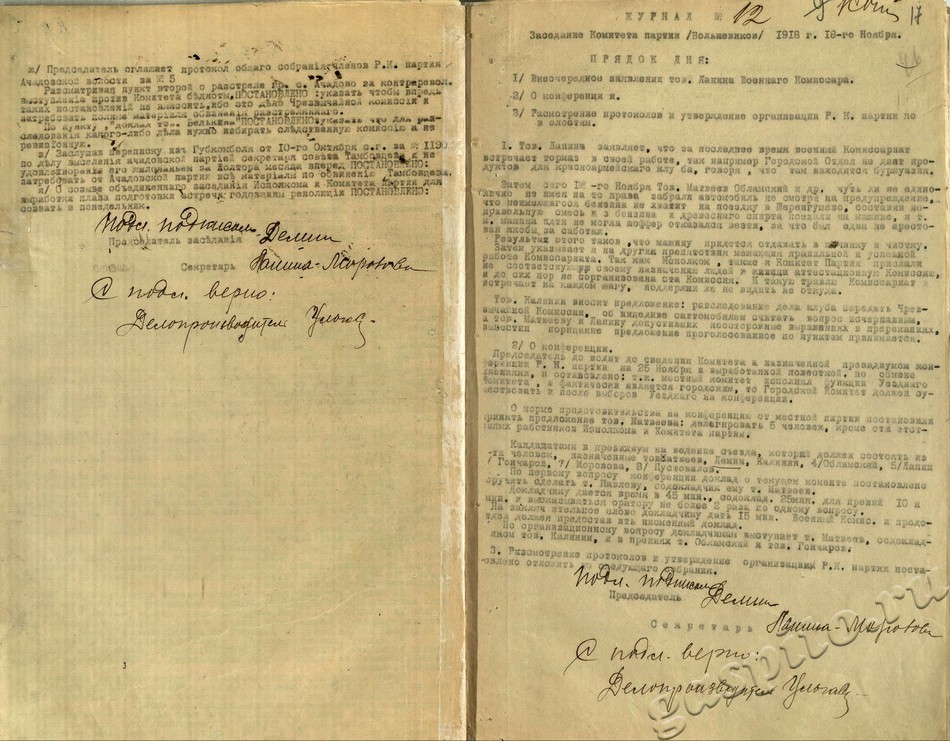 ж/ Председатель оглашает протокол общаго собрания членов Р.К. партии
Ачадовской волости за № 5
Рассматривая пункт второй о расстреле гр. с. Ачадово за контревол.
выступление против Комитета бедноты, ПОСТАНОВЛЕНО: указать чтобы впредь
таких постановлений не выносить, ибо это дело Чрезвычайной Комиссии и
затребовать полные материалы обвинения расстрелянного.
По пункту, "доклад тов. Белкина" ПОСТАНОВЛЕНО: указать что для рас-
следования какого-либо дела нужно избирать следственную комиссию а не
ревизионную.
з/ Заслушав переписку из Губкомбюла от 10-го Октября с.г. за № 1190
по делу выселения ачадовской партией секретаря совета Тамбовцева и не
удовлетворения его жалованьем за полтора месяца вперед ПОСТАНОВЛЕНО:
затребовать от Ачадовской партии все материалы по обвинению Тамбовцева.
и/ О созыве объединеннаго заседания Исполкома и Комитета партии для
выработки плана подготовки встречи годовщины революции ПОСТАНОВЛЕНО:
созвать в понедельник.
Подл. подписали Демин
Председатель заседания
Секретарь Лапина-Морозова
С подл. верно:
Делопроизводитель
ЖУРНАЛ № 12
17
Заседание Комитета партии /Большевиков/ 1918 г. 18-го Ноября.
ПРЯДОК ДНЯ:
1/ Внеочередное заявления тов. Лапина Военнаго Комиссара.
2/ О конференци и.
3/ Расмотрение протоколов и утверждение организации Р. К. партии по
волостям.
1. Тов. Лапина заявляет, что за последнее время военный Комиссариат
встречает тормаз в своей работе, так например Городской Отдел не дает про-
дуктов для Красноармейскаго клуба, говоря, что там находится буржуазия.
Затем сего 18-го Ноября Тов. Матвеев Обламский и др. чуть ли не едино-
лично не имея на то права забрали автомобиль не смотря на предупреждение,
что неимеющегося бензина не хватит на поездку в Перепгузово, составив не-
правильную смесь из бензина и древеснаго спирта поехали на машине, и т.
к. машина идти не могла шоффер отказался везти, за что был едва не аресто-
ван якобы за саботаж.
Результат этого таков, что машину придется отдавать в починку и чистку.
Затем указывает и на другия препятствия мешающия правильной и успешной
работе Комиссариата. Так Исполком, также и Комитет Партии прислали
не соответствующих своему назначению людей в
и до сих пор не организована эта Комиссия. И такую травлю Комиссариат
встречает на каждом шагу, поддержки же не видать не откуда.
Тов. Калинин вносит предложение: расследование дела клуба передать Чрез-
вычайной Комиссии, об инциденте с автомобилем считать вопрос исчерпанным,
а тов. Матвееву и Лапину допустивших неосторожные выражения в пререканиях,
вынести порицание предложение проголосованное по пунктам принимается.
2/ О конференции.
Председатель до водит до сведения Комитета о назначенной президиумом кон-
ференции Р. К. партии на 25 Ноября и выработанной повесткой, по обмене
мнениями, и оставлено: т.к. местный комитет исполнял функции Уезднаго
Комитета, а фактически является городским, то Городской Комитет должен су-
ществовать и после выборов Уезднаго на конференции.
О норме представительства на конференцию от местной партии постановили
принять предложение тов. Матвеева: делегировать 5 человек, кроме ста отст-
Исполкома и Комитета партии.
Кандидатами в президиум на ведение съезда, который должен состоять из
-ти человек, назначенные тов. Матвеев, Демин, Калинин, 4/Облвамский, 5/Лапин
/ Гончаров, 7/ Морозова, 8/ Пустовалов.
По первому вопросу конференции доклад о текущем моменте постановлено
поручить сделать т. Павлову, содокладчик ему т. Матвеев.
Докладчику дается время в 45 мин., содоклад. 25мин. для прений 10
мин. и высказываться оратору не более 2 раза по одному вопросу.
На заключительное слово докладчику дать 15 мин. Военный Комис. и продо-
тдел должен предоставить письменный доклад.
По организационному вопросу докладчиком выступает т. Матвеев, содоклад-
чиком тов. Калинин, и в прениях т. Облвамский и тов. Гончаров.
3. Рязсмотрение протоколов и утверждение организаций Р.К. партии поста-
новлено отложить до следующего собрания.
Подл. подписали
Председатель Демин
Секретарь Лапина-Морозова
С подл. верно:
Делопроизводитель
gaspito.ru